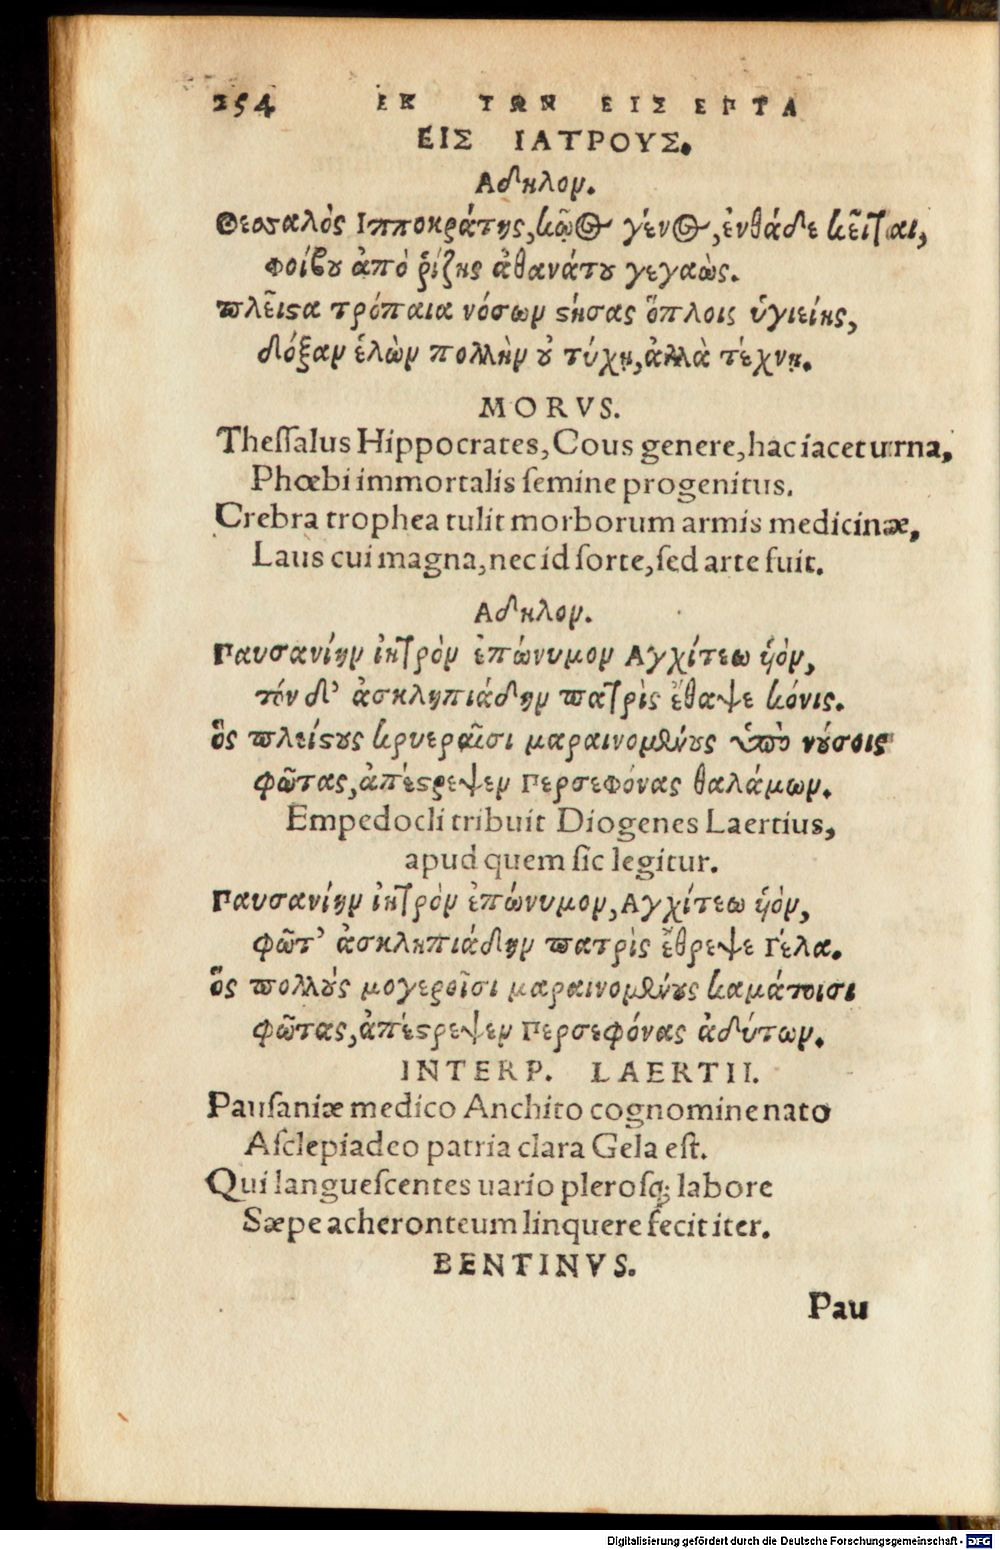 254 ΕΚ ΤΩΝ ΕΙΣ ΕΠΤΑ
ΕΙΣ ΙΑΤΡΟΥΣ.
Αδηλον.
Θεσσαλὸς Ιπποκράτης, κῶος γένος, ἐνθάδε κεῖται,
φοίβου ἀπὸ ῥίζης ἀθανάτου γεγαὼς.
πλεῖστα τρόπαια νόσων στήσας ὅπλοις ὑγιείης,
δόξαν ἑλὼν πολλὴν οὐ τύχῃ, ἀλλὰ τέχνῃ.
MORVS.
Theſſalus Hippocrates, Cous genere, hac iacet urna,
Phœbi immortalis ſemine progenitus.
Crebra trophea tulit morborum armis medicinæ,
Laus cui magna, nec id ſorte, ſed arte fuit.
Αδηλον.
Παυσανίην ἰητρὸν ἐπώνυμον Αγχίτεω ὑὸν,
τόν δ' ἀσκληπιάδην πατρὶς ἔθαψε κόνις.
ὃς πλείστους κρυεραῖσι μαραινομένους ὑπὸ νούσοις
φῶτας, ἀπέστρεψεν Περσεφόνας θαλάμων.
Empedocli tribuit Diogenes Laertius,
apud quem ſic legitur.
Παυσανίην ἰητρὸν ἐπώνυμον, Αγχίτεω ὑὸν,
φῶτ' ἀσκληπιάδην πατρὶς ἔθρεψε Γέλα.
ὃς πολλοὺς μογεροῖσι μαραινομένους καμάτοισι
φῶτας, ἀπέστρεψεν Περσεφόνας ἀδύτων.
INTERP. LAERTII.
Pauſaniæ medico Anchito cognomine nato
Aſclepiadeo patria clara Gela eſt.
Qui langueſcentes uario pleroſq; labore
Sæpe acheronteum linquere fecit iter.
BENTINVS.
Pau
Digitalisierung gefördert durch die Deutsche Forschungsgemeinschaft - DFG